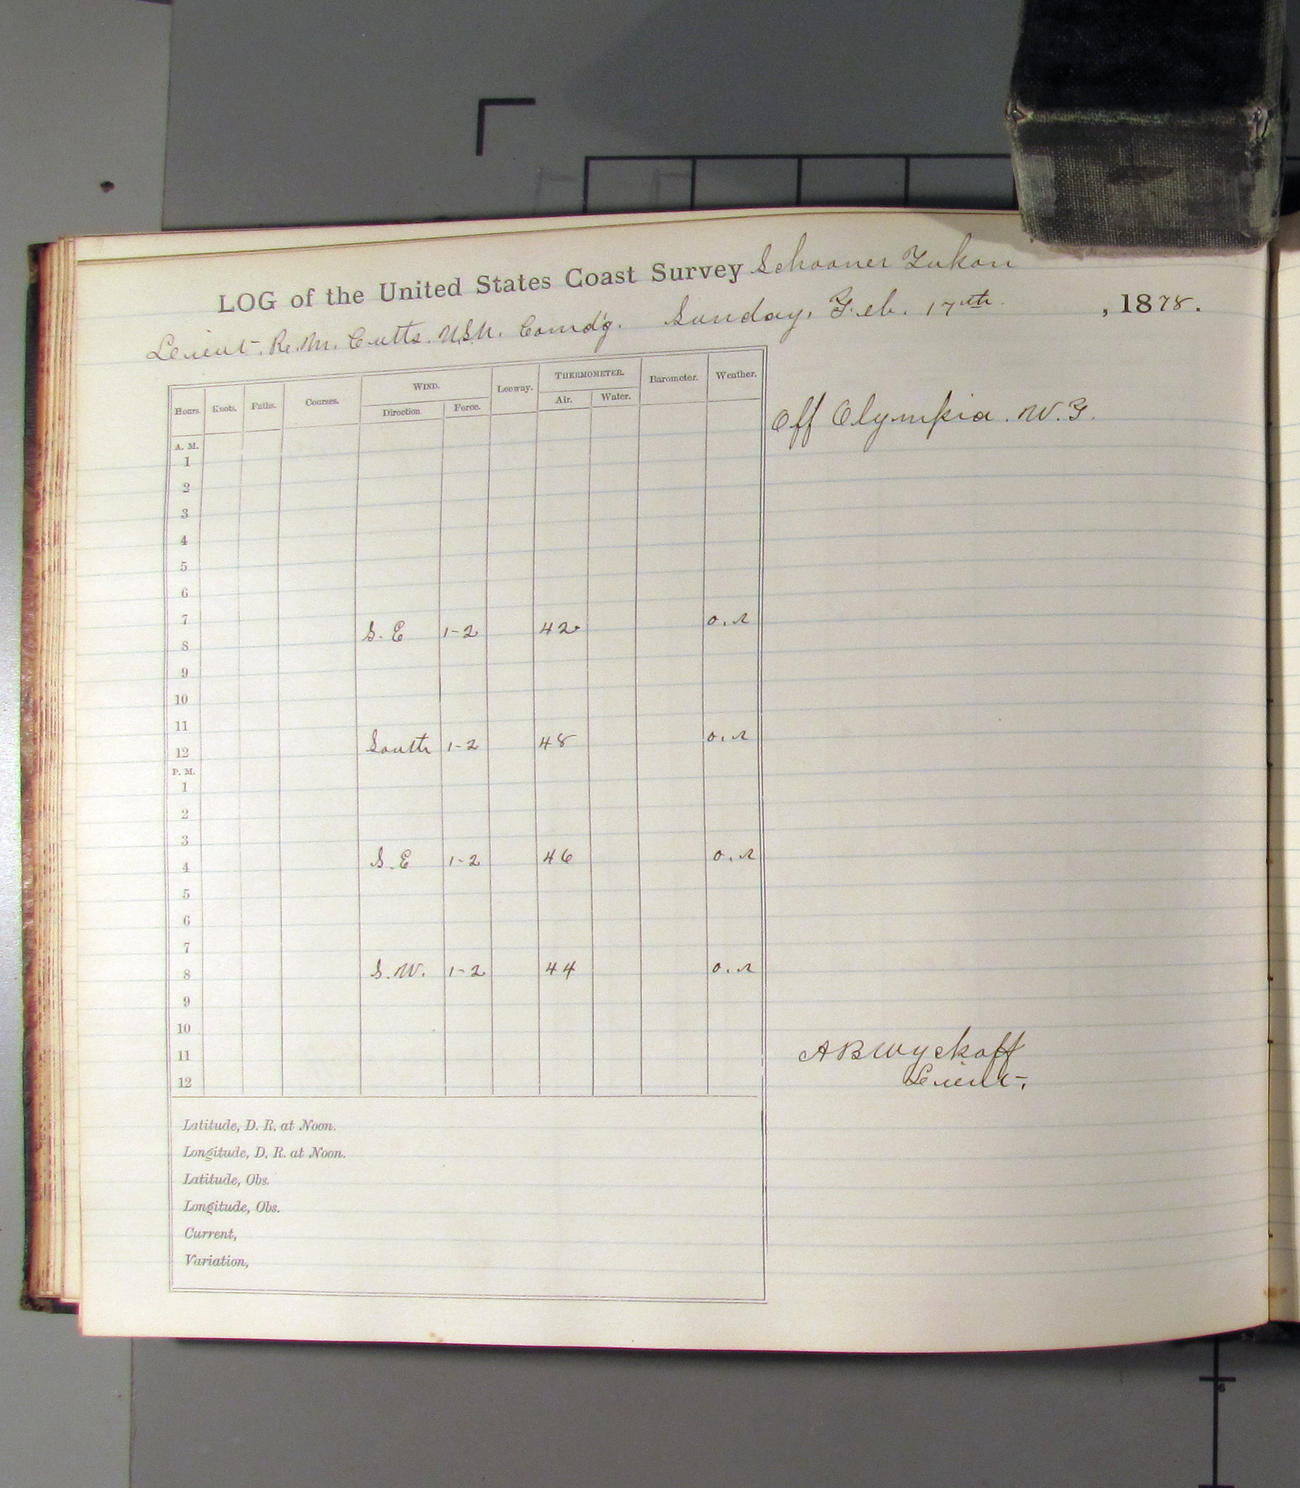 LOG of the United States Coast Survey Schooner Yukon
Lieut. R. M. Cutts. U.S.N. Comd'g. Sunday, Feb. 17th. , 1878.
Hours. Knots. Faths. Courses. WIND. Leeway. THERMOMETER. Barometer. Weather.
Direction Force. Air. Water.
Off Olympia. W.T.
A. M.
1
2
3
4
5
6
7
S. E 1-2 42 o.r
8
9
10
11
South 1-2 48 o.r
12
P. M.
1
2
3
S. E 1-2 46 o.r
4
5
6
7
8 S.W. 1-2 44 o.r
9
10
11 A B Wyckoff
12 Lieut.
Latitude, D. R. at Noon.
Longitude, D. R. at Noon.
Latitude, Obs.
Longitude, Obs.
Current,
Variation,
6